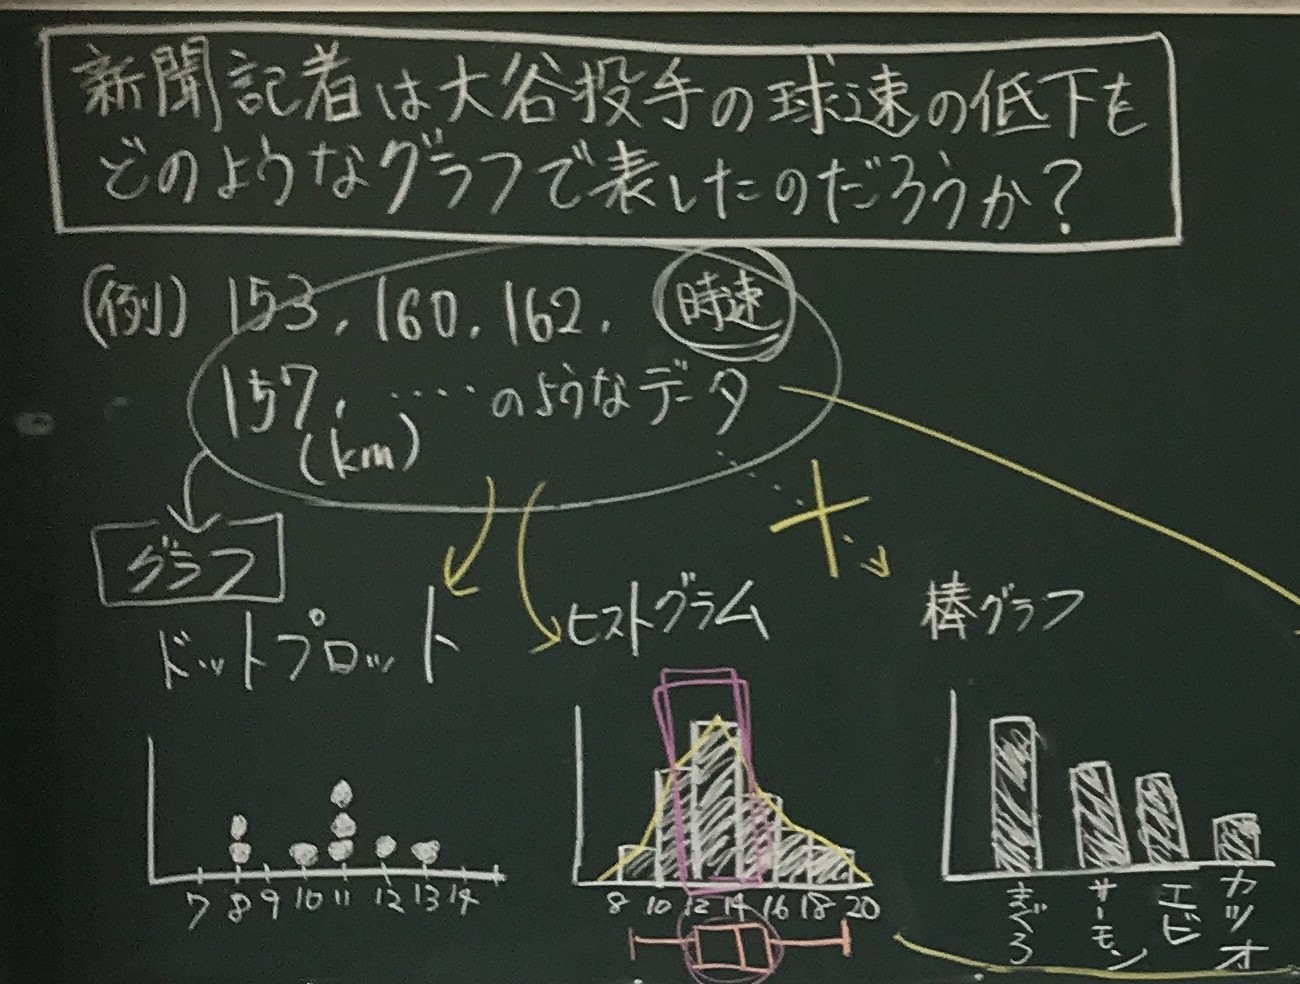 新聞記者は大谷投手の球速の低下を
どのようなグラフで表したのだろうか?
(例) 153, 160, 162, 時速
157, ‥‥のようなデータ
(km)
グラフ
ドットプロット
ヒストグラム
棒グラフ
7 8 9 10 11 12 13 14
8 10 12 14 16 18 20
まぐろ
サーモン
エビ
カツオ